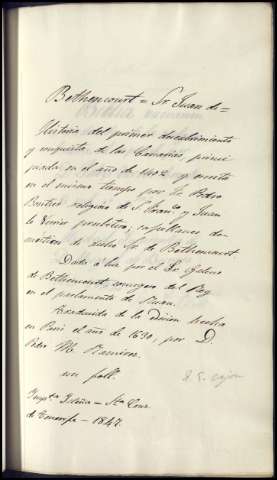 Bethencourt = Sr. Juan de =
Historia del primer descubrimiento
y conquista de las Canarias princi
piada en el año de 1402 y escrita
en el mismo tiempo por Fr. Pedro
Bontier religioso de S. Franco. y Juan
le Verier presbítero, capellanes do-
mésticos de dicho Sr. de Bethencourt
Dada a luz por el Sr. Galeno
de Bethencourt, consejero del Rey
en el parlamento de Ruan.
Traducida de la edición hecha
en París el año de 1630, por D.
Pedro M. Ramirez.
un foll.
Impta. Isleña - Sta. Cruz
de Tenerife - 1847.